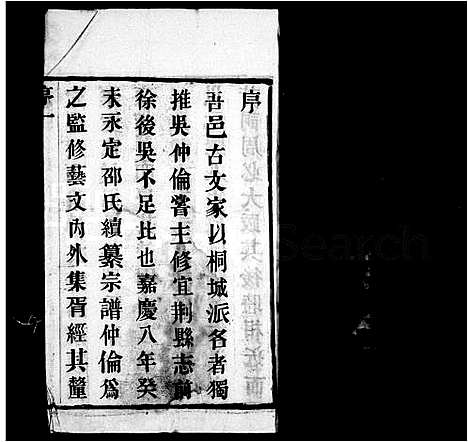 序
吾邑古文家以桐城派名者獨
推吳仲倫嘗主修宜荆縣志前
徐後吳不足比也嘉慶八年癸
未永定邵氏續纂宗譜仲倫爲
之監修藝文內外集胥經其釐
序一
Search